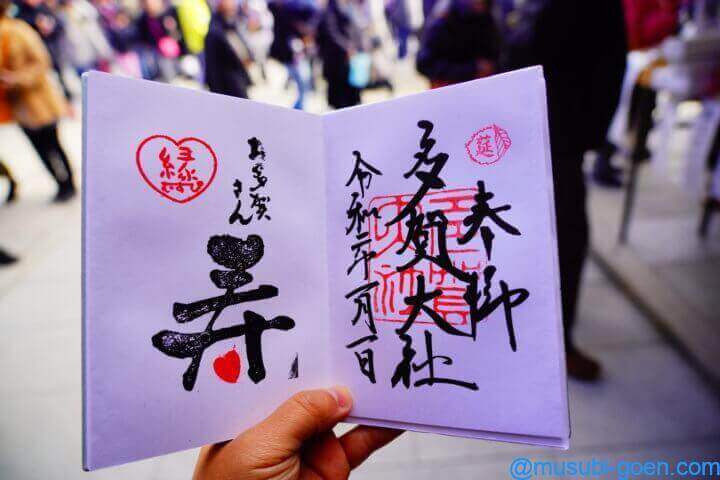 莚
奉拝
多賀大社
令和二年一月一日
お多賀さん
寿
縁
むすび
@musubi-goen.com